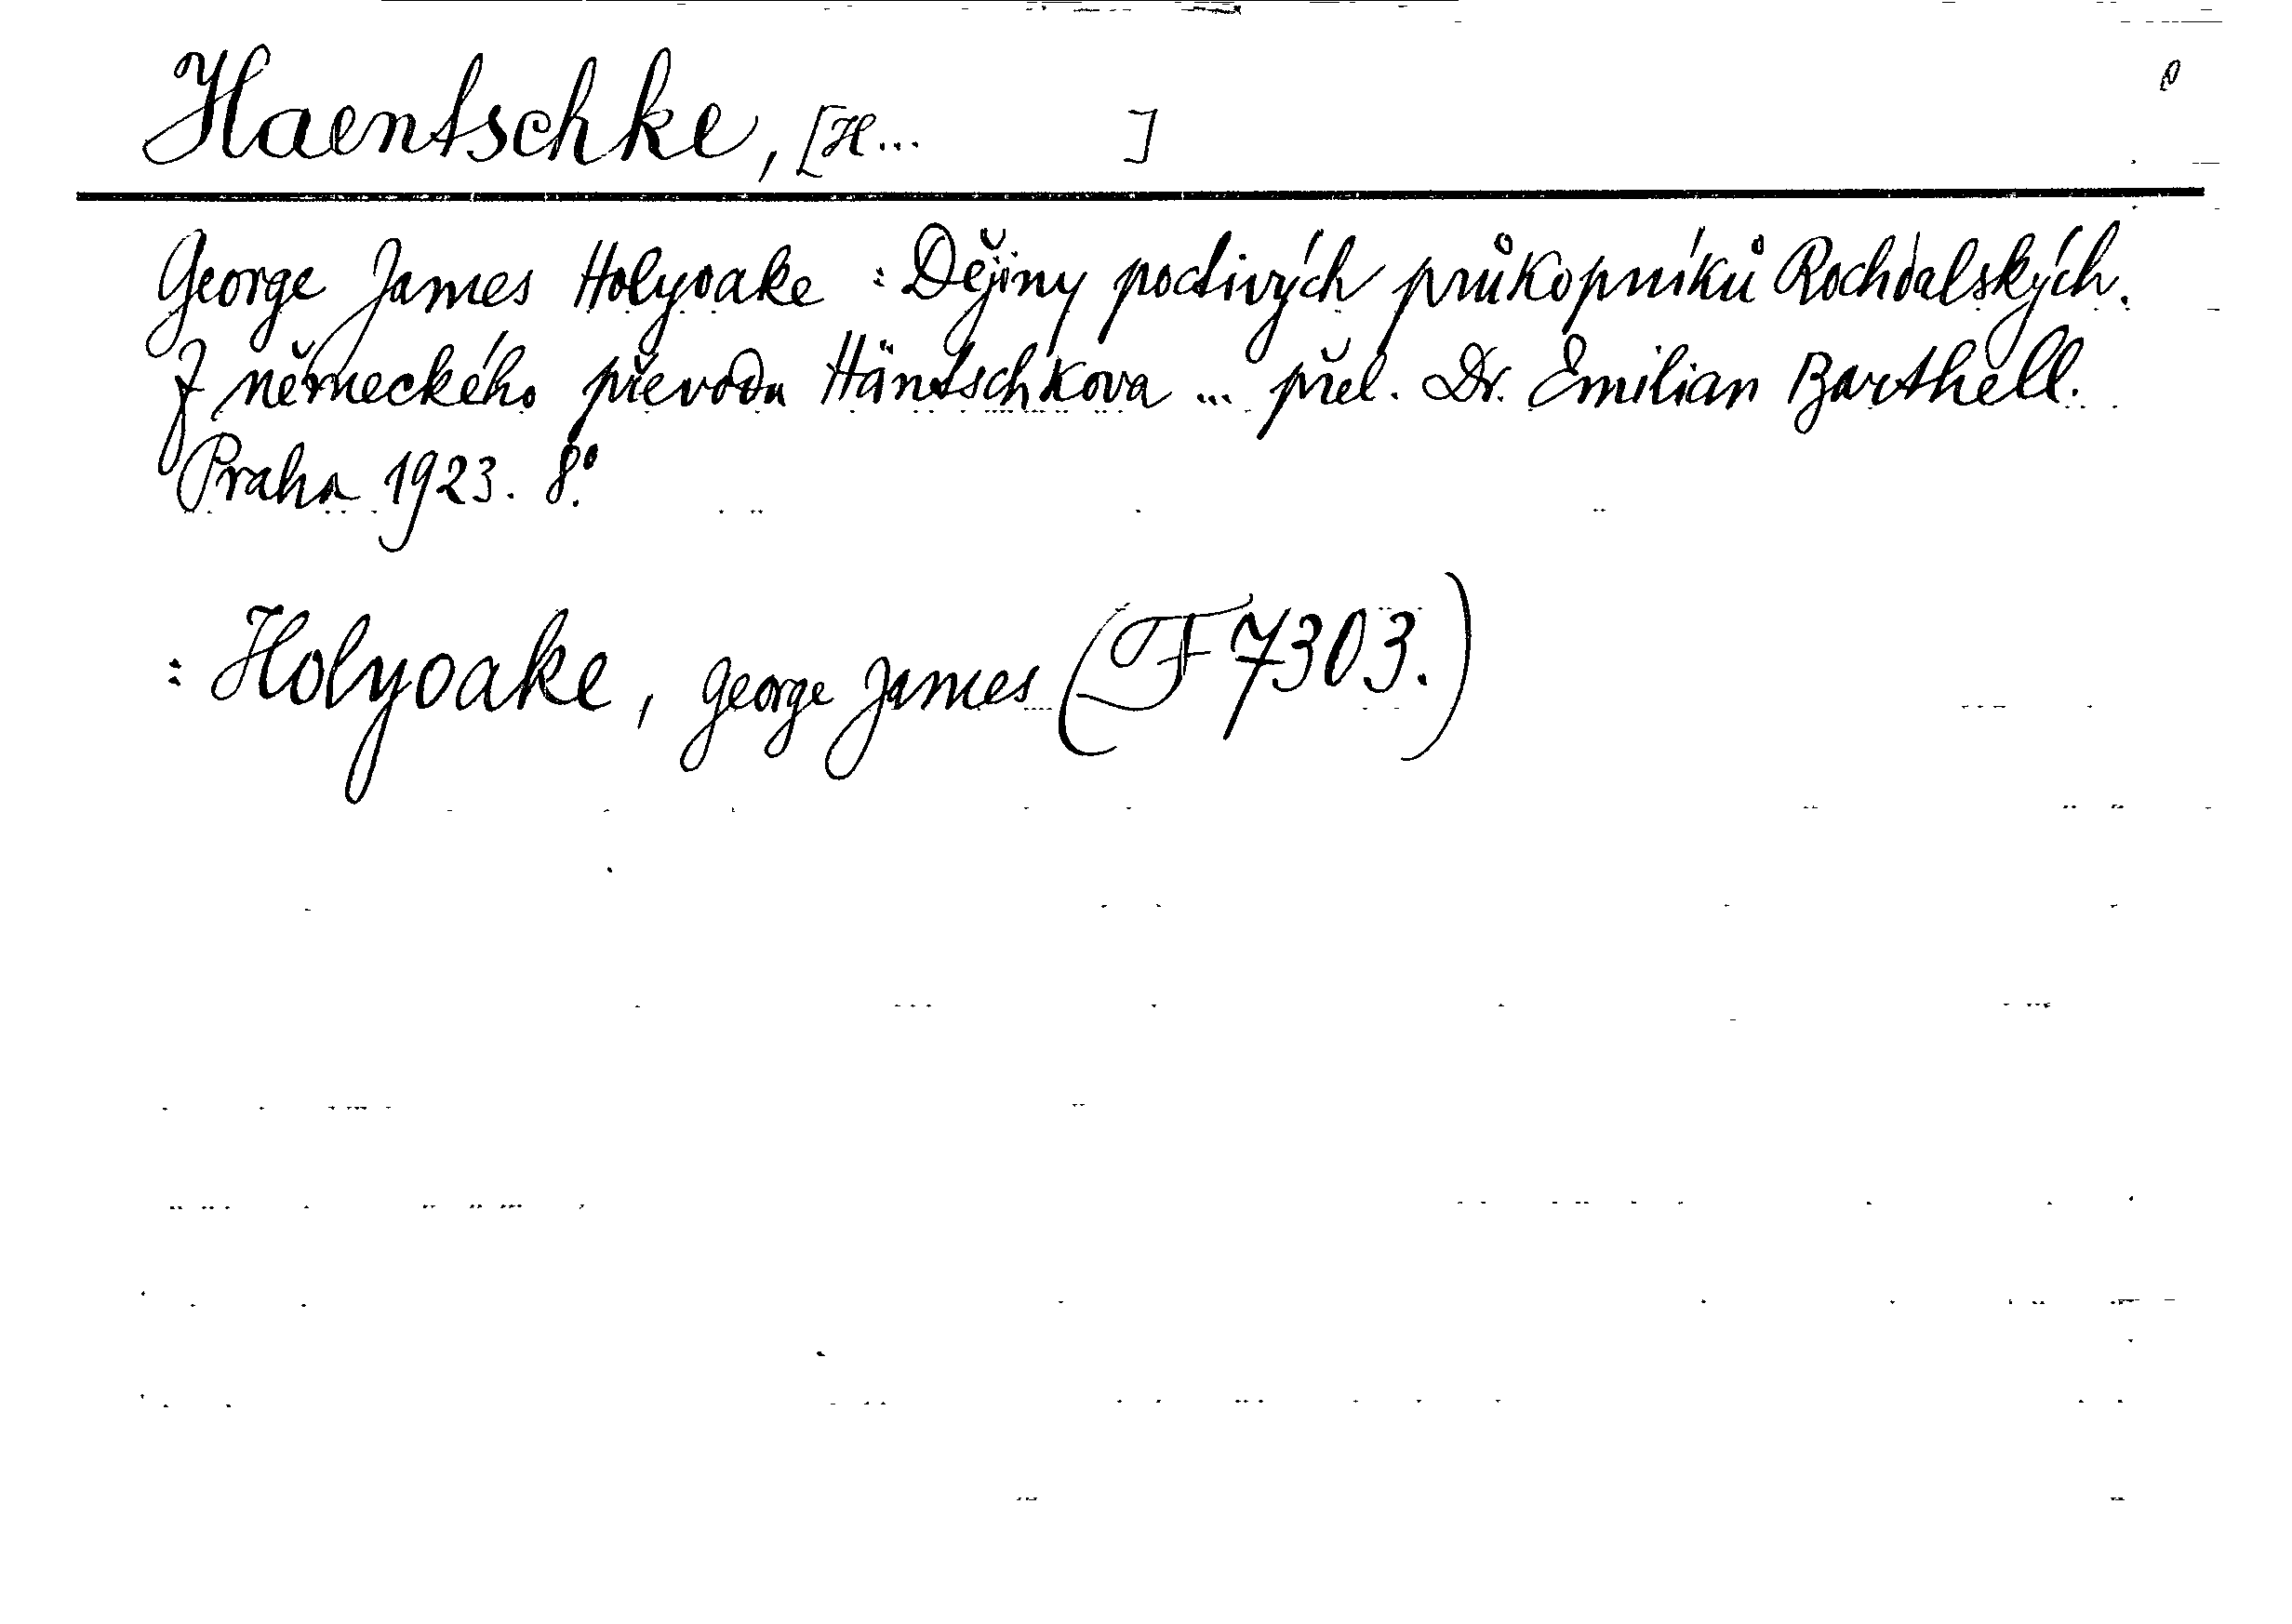 Haentschke, [H... ]
George James Holyoake : Dějiny poctivých průkopníků Rochdalských.
Z německého převodu Häntschkova ... přel. Dr. Emilian Barthell.
Praha 1923. 8°.
: Holyoake, George James (F 7303.)